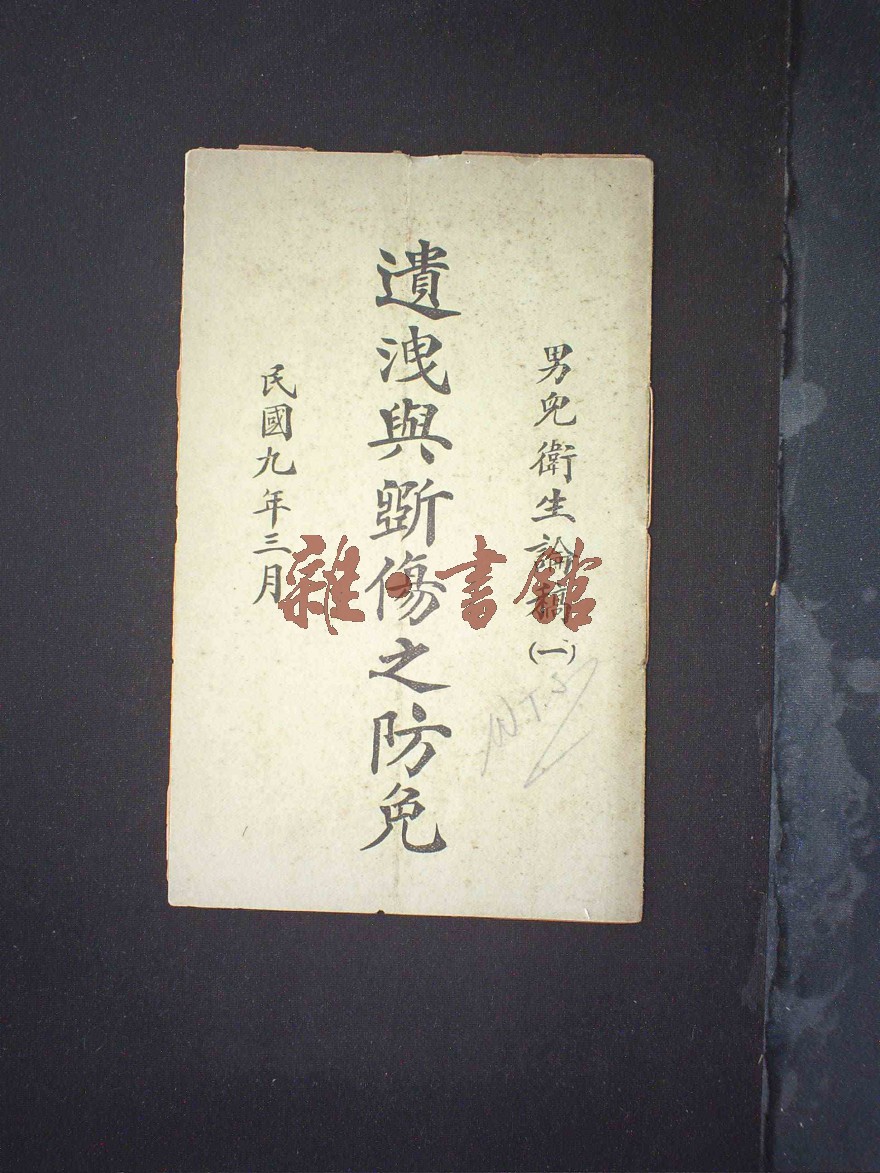 男兒衛生論稿(一)
遺洩與斲傷之防免
民國九年三月
雜·書館
W.T.S